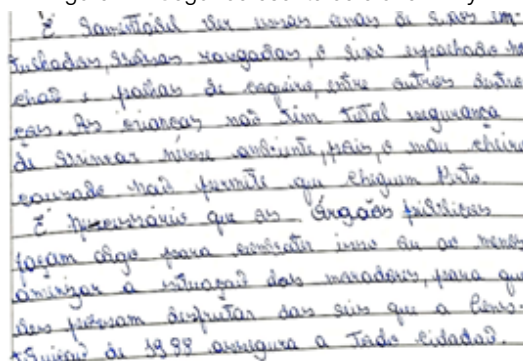 É lamentável ver nossas áreas de lixos en-
tulhadas, sacolas rasgadas, o lixo espalhado no
chão e palhas de coqueiro, entre outros destro
ços. As crianças não têm total segurança
de brincar nesse ambiente, pois, o mau cheiro
causado não permite que cheguem perto.
É necessário que os Órgãos públicos
façam algo para combater isso ou ao menos
amenizar a situação dos moradores, para que
eles possam desfrutar das leis que a Cons-
tituição de 1988 assegura a todo cidadão.